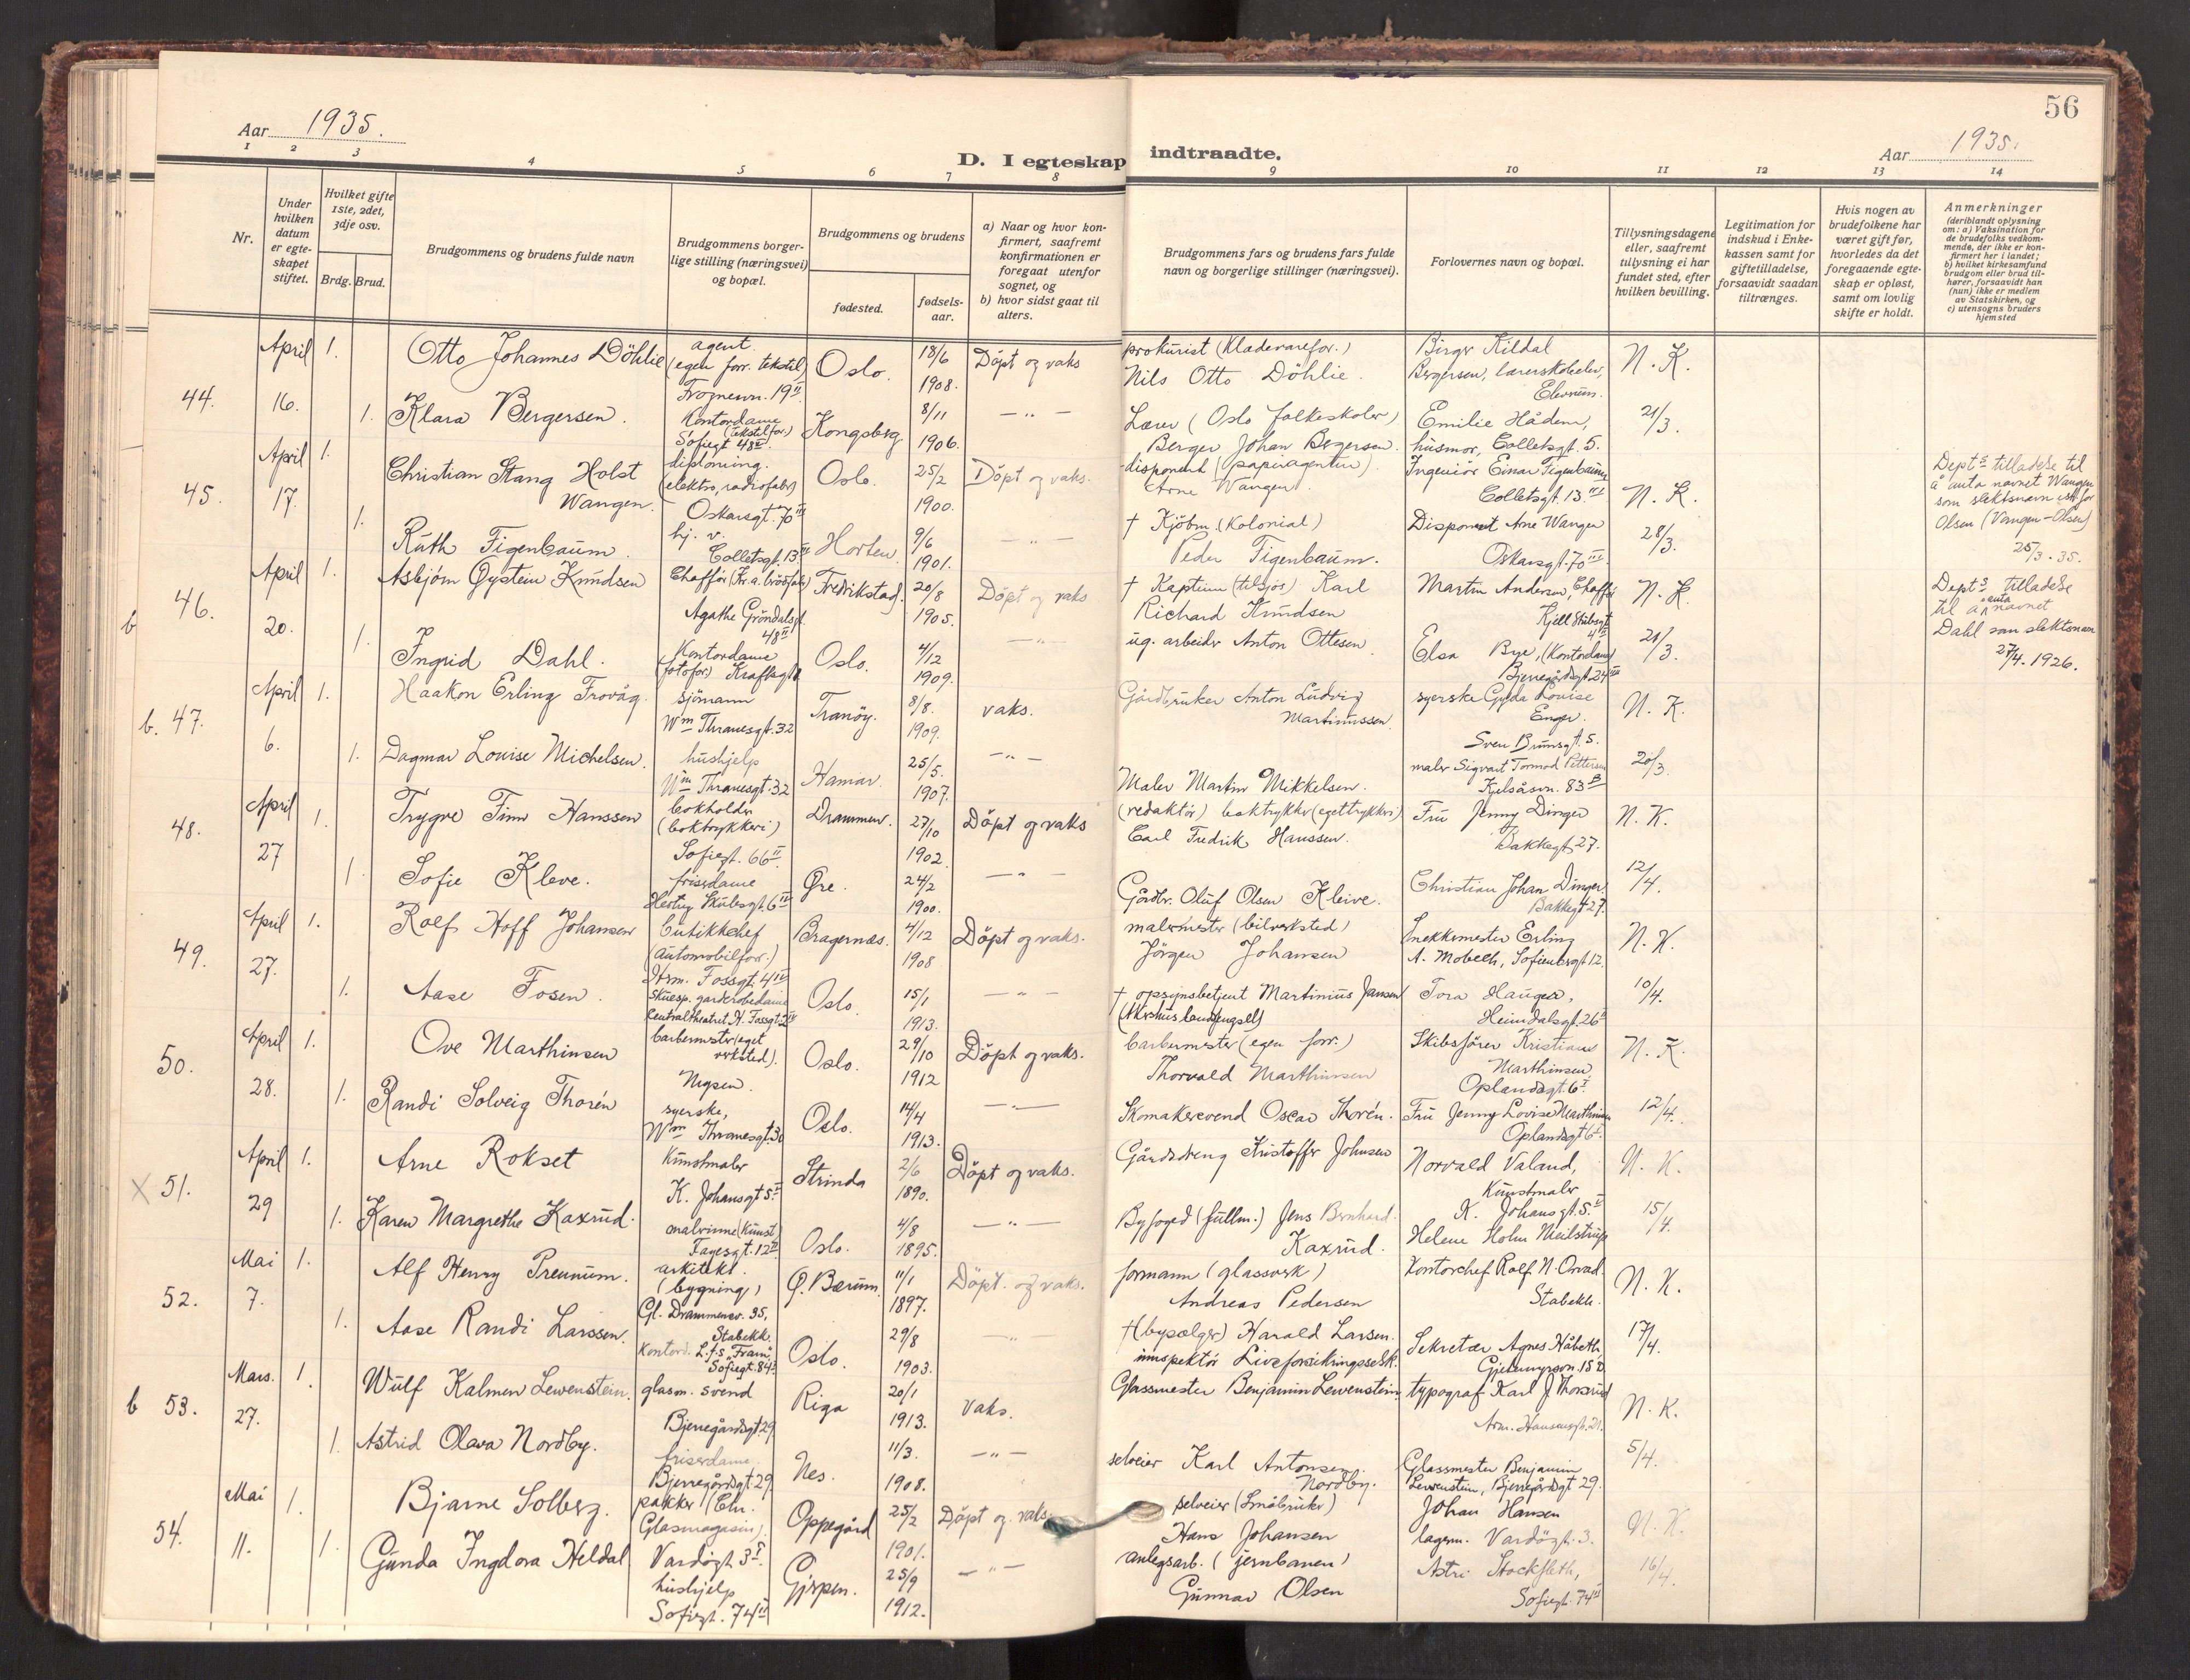 56
Aar 1935.
Aar 1935.
D. I egteskap indtraadte.
1 2 3 4 5 6 7 8 9 10 11 12 13 14
Nr.
Under hvilken datum er egteskapet stiftet.
Hvilket gifte 1ste, 2det, 3dje osv.
Brdg. Brud.
Brudgommens og brudens fulde navn
Brudgommens borgerlige stilling (næringsvei) og bopæl.
Brudgommens og brudens
fødested.
fødselsaar.
a) Naar og hvor konfirmert, saafremt konfirmationen er foregaat utenfor sognet, og
b) hvor sidst gaat til alters.
Brudgommens fars og brudens fars fulde navn og borgerlige stillinger (næringsvei).
Forlovernes navn og bopæl.
Tillysningsdagene eller, saafremt tillysning ei har fundet sted, efter hvilken bevilling.
Legitimation for indskud i Enkekassen samt for giftetilladelse, forsaavidt saadan tiltrænges.
Hvis nogen av brudefolkene har været gift før, hvorledes da det foregaaende egteskap er opløst, samt om lovlig skifte er holdt.
Anmerkninger
(deriblandt oplysning om: a) Vaksination for de brudefolks vedkommende, der ikke er konfirmert her i landet; b) hvilket kirkesamfund brudgom eller brud tilhører, forsaavidt han (hun) ikke er medlem av Statskirken, og c) utensogns bruders hjemsted
44. April 16. 1. Otto Johannes Döhlie agent (egen forr. tekstil) Frognervn. 19 II Oslo. 18/6 1908. Döpt og vaks prokurist (Klædevarefor.) Nils Otto Döhlie. Birger Kildal Bergersen, lærerskoleelev, Elverum. N. K.
1. Klara Bergersen. Kontordame (tekstilfor.) Sofiegt 48 II Kongsberg 8/11 1906. — " — Lærer (Oslo folkeskoler) Berger Johan Bergersen. Emilie Hådem, husmor, Colletsgt. 5. 21/3.
45. April 17. 1. Christian Stang Holst Wangen. diploming. (elektro, radiofabr) Oskarsgt. 70 III Oslo. 25/2 1900. Döpt og vaks. disponent (papiragentur) Arne Wangen. Ingeniör Einar Figenbaum Colletsgt 13 III N. K.
Dept s tilladelse til å anta navnet Wangen som slektsnavn istf. for Olsen (Vangen-Olsen) 25/3. 35.
1. Ruth Figenbaum. hj. v. Colletsgt. 13 III Horten. 9/6 1901. — " — † Kjöbm. (Kolonial) Peder Figenbaum. Disponent Arne Wangen Oskarsgt. 70 III 28/3.
b 46. April 20. 1. Asbjörn Øystein Knudsen Chafför (Kr.a. brödfabr) Agathe Gröndalsgt. 48 II Fredrikstad. 20/8 1905. Döpt og vaks † Kaptein (tilsjös) Karl Richard Knudsen Martin Andersen, Chafför Kjell Stubsgt N. K.
Dept s tilladelse til å anta navnet Dahl som slektsnavn 27/4. 1926.
1. Ingrid Dahl. Kontordame (fotofor.) Kraftsgt Oslo. 4/12 1909. — " — ug. arbeider Anton Ottesen Elsa Bye, (Kontordame) Bjerregårdsgt. 24 III 21/3.
b. 47. April 6. 1. Haakon Erling Frovåg. sjömann Wm Thranesgt. 32 Tranöy. 8/8. 1909. vaks. Gårdbruker Anton Ludvig Martinussen syerske Gyda Louise Enger. Sven Brunsgt. 5. N. K.
1. Dagmar Louise Michelsen. hushjelp Wm Thranesgt. 32 Hamar. 25/5. 1907. — " — Maler Martin Mikkelsen. maler Sigvart Tormod Pettersen Kjelsåsvn. 83 B 20/3.
48. April 27 1. Trygve Finn Hanssen bokholder (boktrykkeri) Sofiegt. 66 II. Drammen. 27/10 1902. Döpt og vaks (redaktör) boktrykker (eget trykkeri) Carl Fredrik Hanssen. Fru Jenny Dinger Bakkegt 27. N. K.
1. Sofie Kleve. frisørdame Hertug Skulesgt. 6 III Øre. 24/2 1900. — " — Gårdbr. Oluf Olsen Kleive. Christian Johan Dinger. Bakkegt 27. 12/4.
49. April 27. 1. Rolf Hoff Johansen butikkchef (automobilforr.) Hrm. Fossgt. 4 IV Bragernæs. 4/12 1908 Döpt og vaks. malermester (bilverksted) Jörgen Johansen Snekkermester Erling A. Mobech, Sofienbergt 12. N. K.
1. Aase Fosen. Skuesp. garderobedame Centraltheatret. H. Fossgt. 2 IV Oslo. 15/1 1913. — " — † opsynsbetjent Martinius Jansen (Akershus landsfengsel) Tora Haugen, Heimdalsgt. 26 II 10/4.
50. April 28. 1. Ove Marthinsen barbermester (eget verksted). Oslo. 29/10 1912 Döpt og vaks. barbermester (egen forr.) Thorvald Marthinsen Skibsförer Kristians Marthinsen Oplandsgt. 6 I. N. K.
1. Randi Solveig Thorén syerske, Wm Thranesgt. 30 Oslo. 14/4 1913. — " — Skomakersvend Oscar Thorén. Fru Jenny Lovise Marthinsen Oplandsgt 6 I. 12/4.
X 51. April 29 1. Arne Rokset Kunstmaler K. Johansgt 5 II Strinda 2/6 1890. Döpt og vaks. Gårdsdreng Kristoffer Johnsen Norvald Valand, Kunstmaler K. Johansgt. 5. II N. K.
1. Karen Margrethe Kaxrud. malerinne (Kunst) Fagesgt. 12 II Oslo. 4/8 1895. — " — Byfoged (fullm.) Jens Bernhard Kaxrud. Helene Holm Meilstrup 15/4.
52. Mai 7. 1. Alf Henry Preunum. arkitekt. (bygning) Gl. Drammensv. 35, Stabekk Ø. Bærum. 11/1 1897. Döpt. og vaks. formann (glassverk) Andreas Pedersen Kontorchef Rolf N. Orvad. Stabekk. N. K.
1. Aase Randi Larssen. Kontord. L.f.s "Fram", Sofiegt. 84 Oslo. 29/8 1903. — " — † (bysælger) Harald Larsen. innspektör Livsforsikringsselsk. Sekretær Agnes Håbeth, Gjetemyrsvn. 15 17/4.
b 53. Mars. 27. 1. Wulf Kalmen Lewenstein. glasm. svend Bjerregårdsgt. 29 Riga 20/1 1913. Vaks. Glassmester Benjamin Lewenstein. typograf Karl J. Thorsrud Arm. Hansensgt. 21. N. K.
1. Astrid Olava Nordby. friserdame. Bjerregårdsgt. 29 Nes. 11/3. 1908. — " — selveier Karl Antonsen Nordby. Glassmester Benjamin Lewenstein, Bjerregårdsgt 29. 5/4.
54. Mai 11. 1. Bjarne Solberg. pakker (Chr. Glasmagasin) Vardögt. 3 I. Oppegård 25/2 1901. Döpt og vaks. selveier (Småbruker) Hans Johansen Johan Hansen lagerm. Vardögt. 3. N. K.
1. Gunda Ingdora Heldal hushjelp Sofiegt. 74 II Gjerpen. 25/9 1912. — " — anlegsarb. (jernbanen) Gunnar Olsen Astri Stockfleth, Sofiegt. 74 II 16/4.